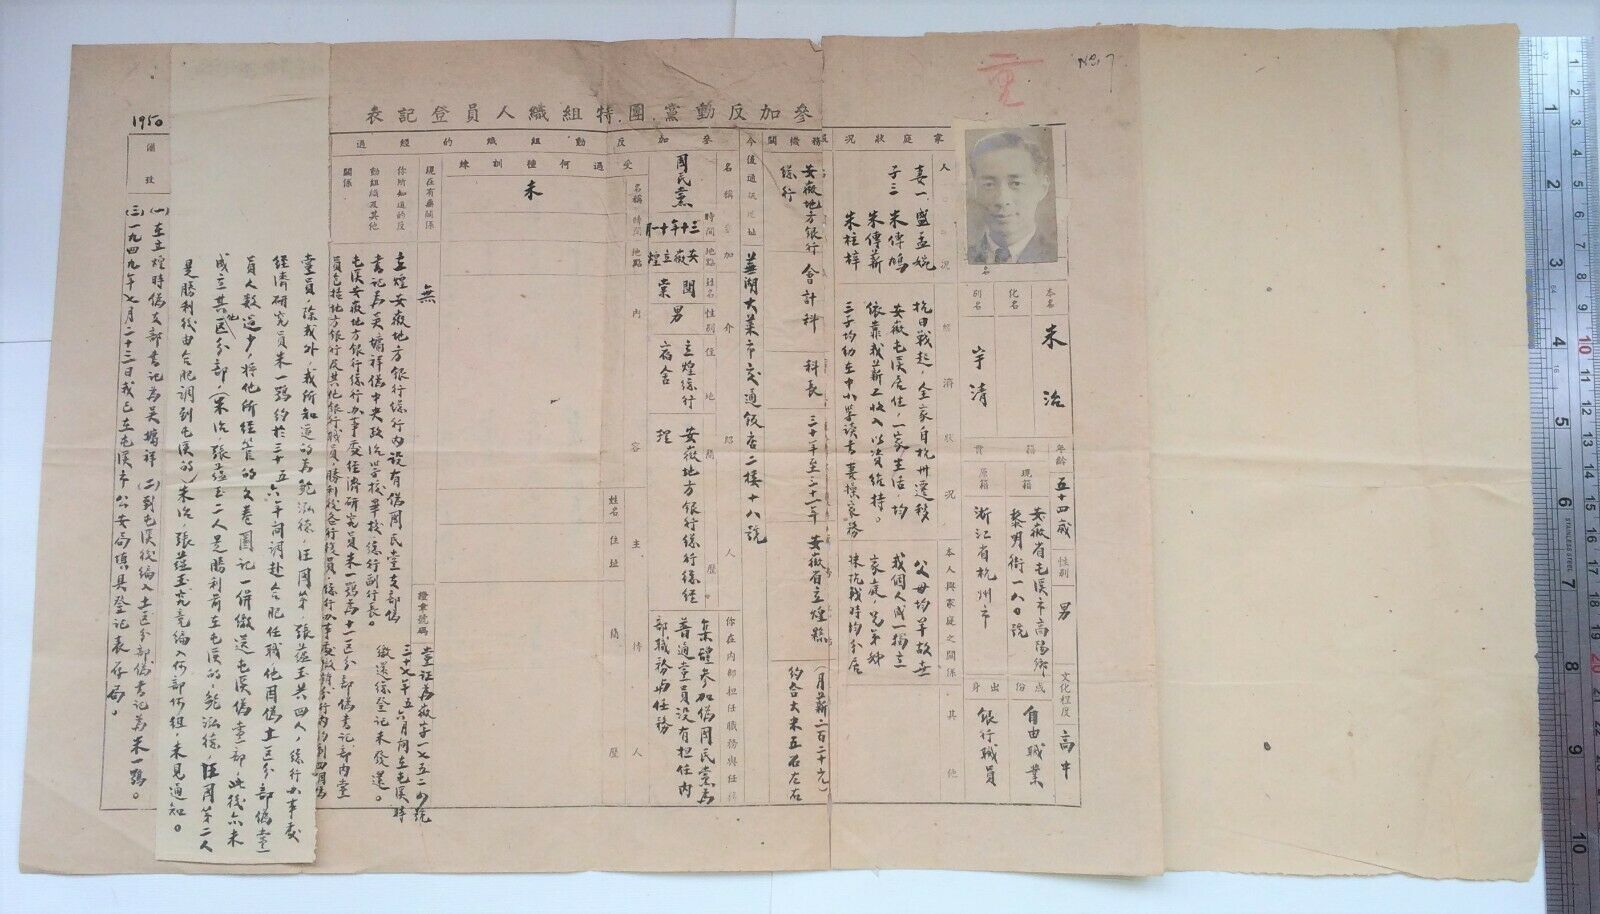 NO. 7
參加反動黨團特組織人員登記表
本名
朱治
化名
別名
宇清
年齡
五十四歲
性別
男
文化程度
高中
籍貫
現籍
安徽省屯溪市高陽鄉
黎明街一八〇號
原籍
浙江省杭州市
成份
自由職業
出身
銀行職員
家庭狀況
人
況
妻一 盛孟婉
子三 朱傳鳴
朱傳薪
朱柱梓
經濟狀況
抗日戰起,全家自杭州遷移
安徽屯溪居住,一家生活,均
依靠我薪工收入以資維持。
三子均幼在中小學讀書妻操家務
本人與家庭之關係
其他
父母均早故世
我個人成一獨立
家庭,兄弟姊
妹抗戰時均分居
務機關
安徽地方銀行 會計科
總行
科長
三十一年至三十二年 安徽省立煌縣
(月薪二百二十元)
約合大米五石左右
今後通訊地址
蕪湖大菜市交通飯店二樓十八號
參加反動組織的經過
名稱
國民黨
時間
三十年十一月
地點
安徽立煌
介紹人
姓名
閔棠
性別
男
住地
立煌總行宿舍
簡歷
安徽地方銀行總行總經理
你在內部担任職務與任務
集體參加偽國民黨為
普通黨員沒有担任內
部職務與任務
受過何種訓練
名稱
時間
地點
內容
主持人
姓名
住址
簡歷
未
現在有無關係
無
證章號碼
三十七年五六月間在屯溪時
繳還總登記未發還。
你所知道的反動組織及其他關係
立煌安徽地方銀行總行內設有偽國民黨支部偽
書記為吳墉祥偽中央政治學校畢校總行副行長。
屯溪安徽地方銀行總行办事處經濟研究員朱一鶚為十一區分部偽書記部內黨
黨員,除我外,我所知道的為鮑泓德,汪國第,張蘊玉共四人,總行办事處
經濟研究員朱一鶚約於三十五六年間調赴合肥任職他因偽土區分部偽黨
員人數过少,將他所經管的文卷圖記一併繳送屯溪偽黨部,此後亦未
成立其他區分部,(朱治張蘊玉二人是勝利前在屯溪的,鮑泓德,汪國第二人
是勝利後由合肥調到屯溪的)朱治,張蘊玉究竟編入何部何組,未見通知。
1950
備攷
(一)在立煌時偽支部書記為吳墉祥 (二)到屯溪後編入土區分部偽書記為朱一鶚。
(三)一九四九年七月二十三日我已在屯溪市公安局填具登記表存局。